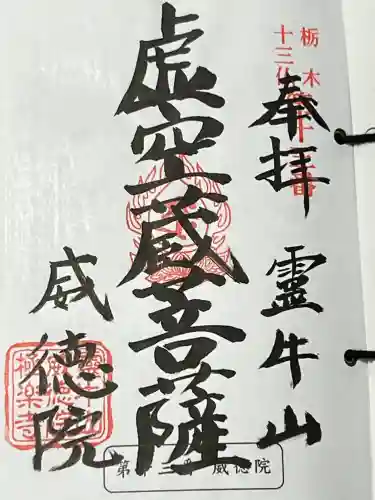 奉拝 霊牛山
虚空蔵菩薩
威徳院
栃木
十三仏
番
極楽寺
威徳院